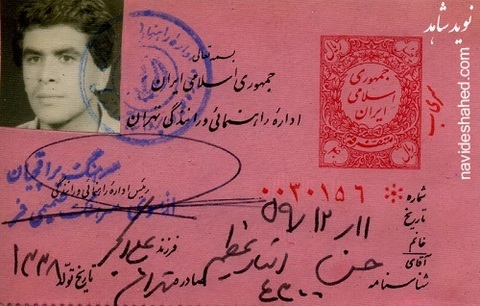 نوید شاهد
navideshahed.com
اداره راهنمائی
بسمه تعالی
جمهوری اسلامی ایران
اداره راهنمائی و رانندگی تهران
ریال
جمهوری
اسلامی
ایران
سری ب
سرهنگ
رئیس اداره راهنمائی و رانندگی
از سوی سرهنگ
شماره ۰۰۳۰۱۵۶
تاریخ ۵۹/۱۲/۱۱
خانم
آقای حسن فرزند علی اکبر
شناسنامه ۴۳۰۰ صادره تهران تاریخ تولد ۱۳۳۸